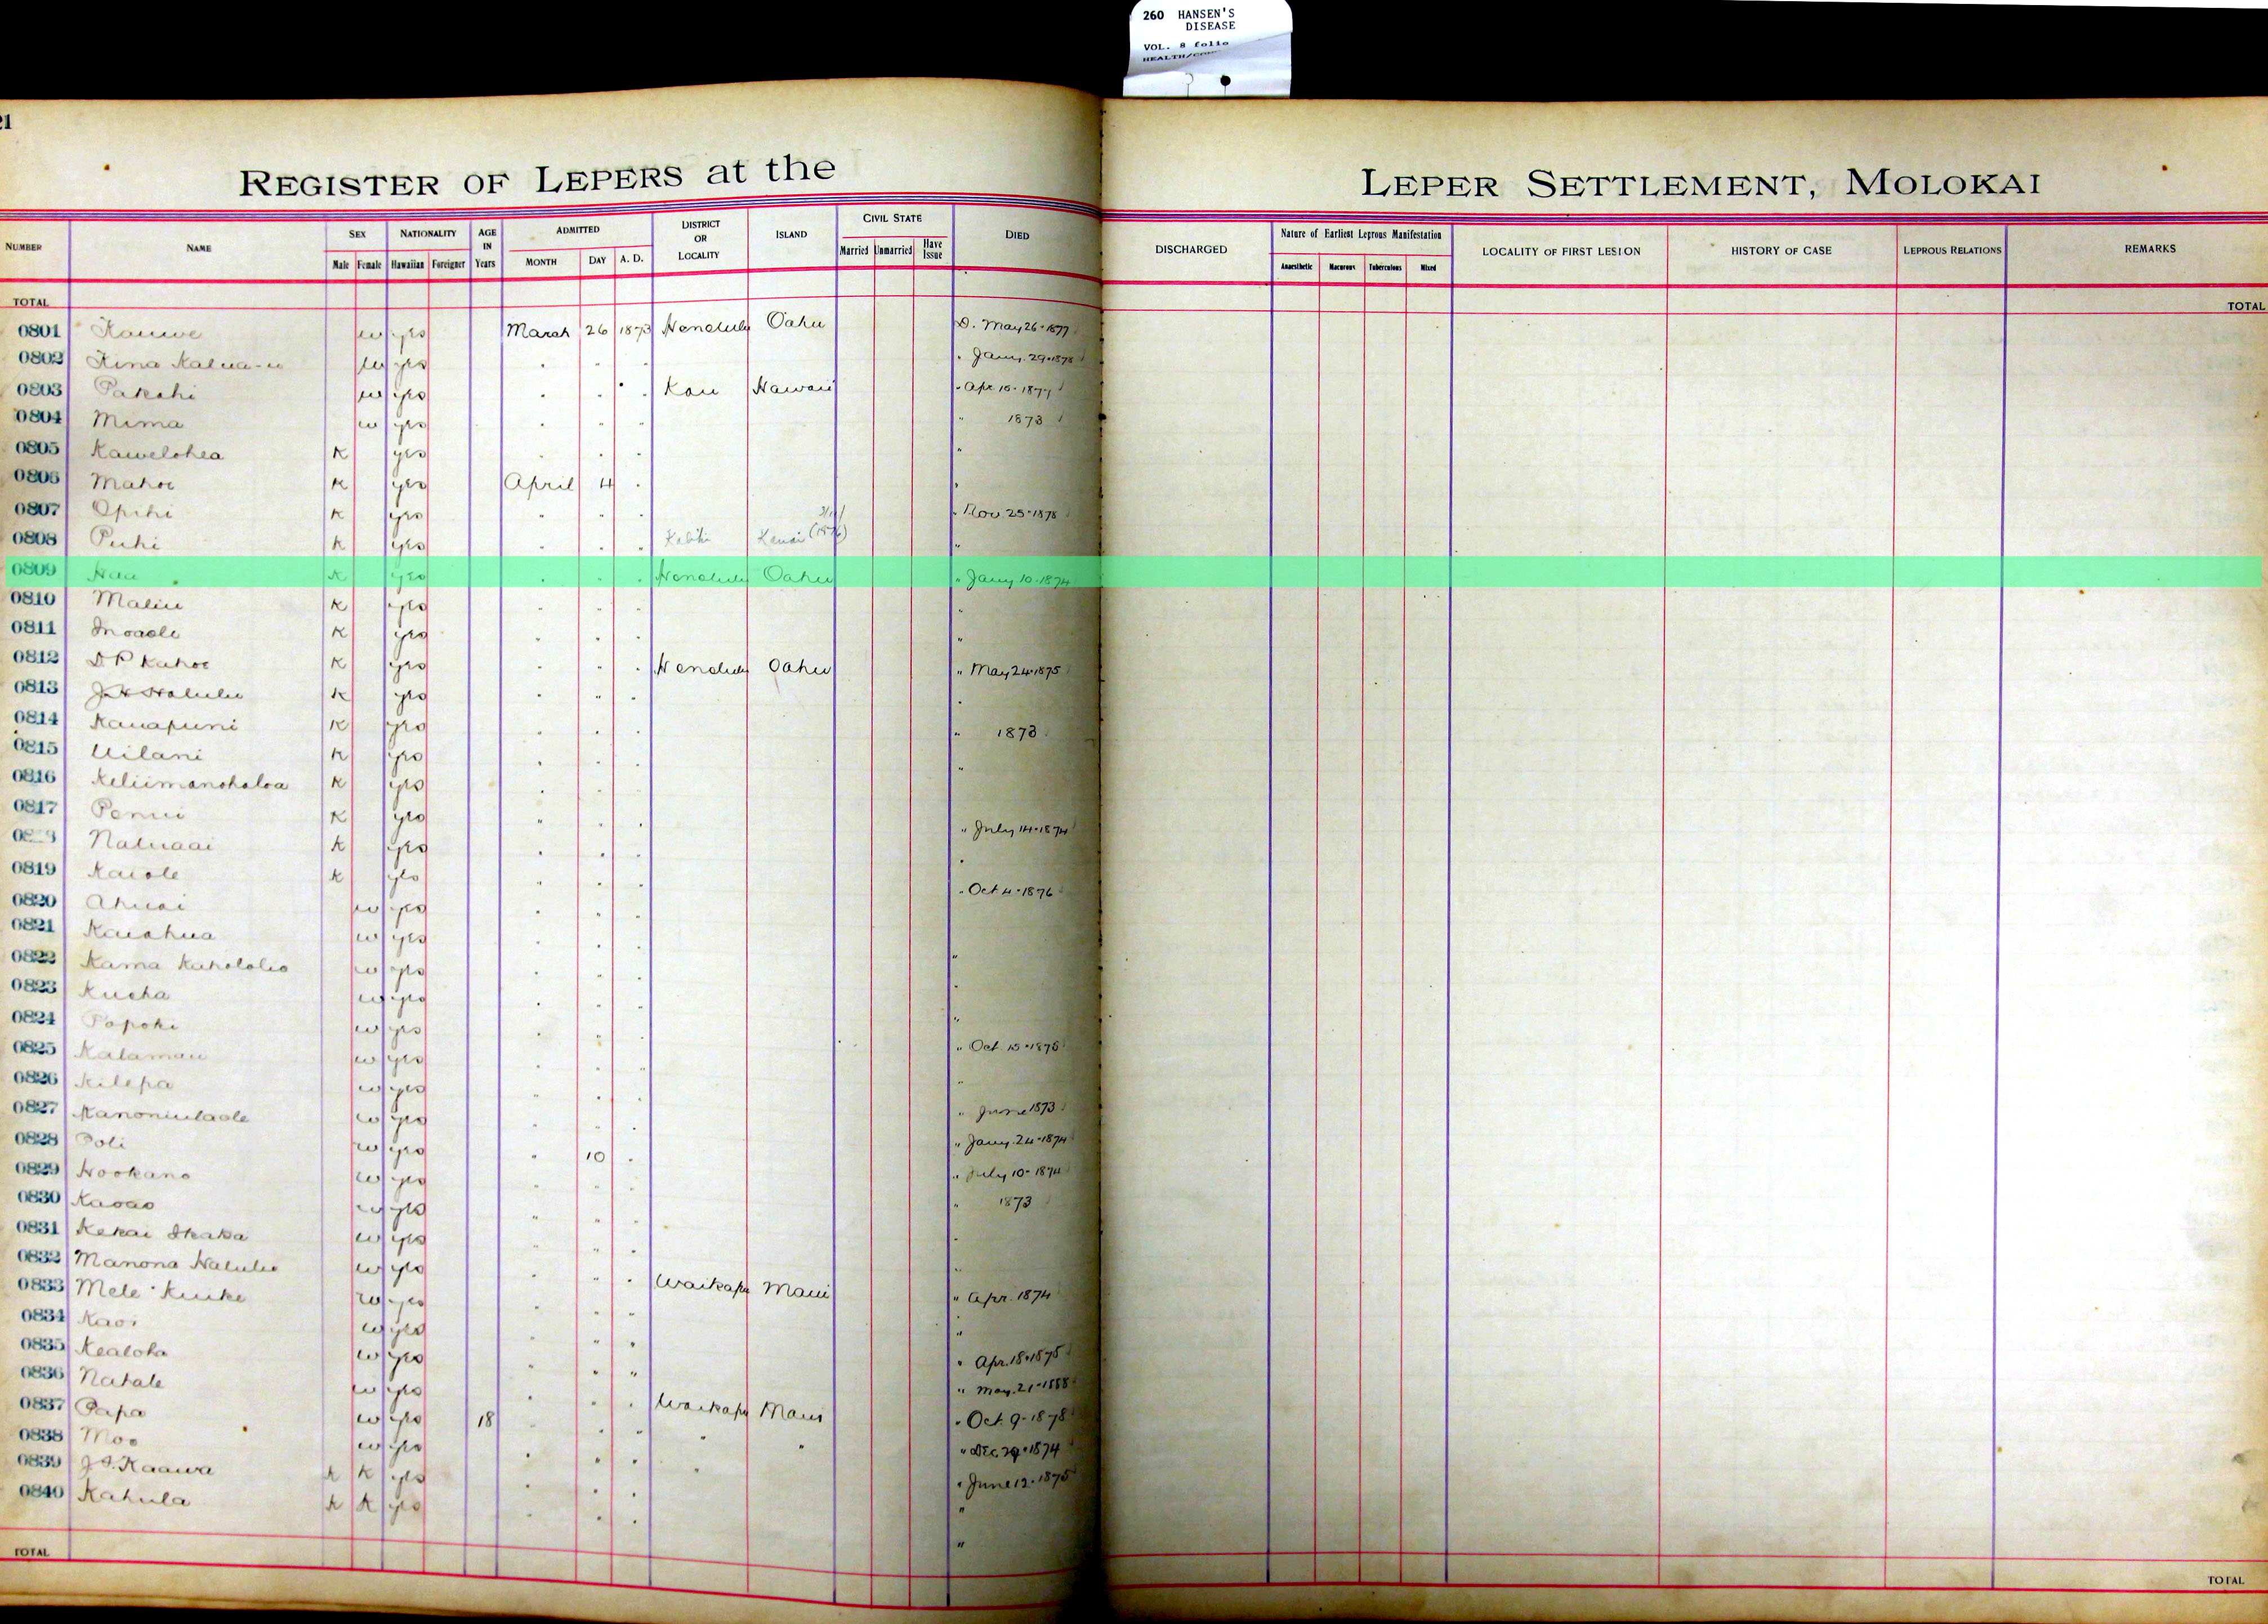 260 HANSEN'S
DISEASE
VOL. 8 folio
21
REGISTER OF LEPERS at the LEPER SETTLEMENT, MOLOKAI
NUMBER NAME SEX NATIONALITY AGE IN Years ADMITTED DISTRICT OR LOCALITY ISLAND CIVIL STATE DIED DISCHARGED Nature of Earliest Leprous Manifestation LOCALITY OF FIRST LESION HISTORY OF CASE LEPROUS RELATIONS REMARKS
Male Female Hawaiian Foreigner MONTH DAY A. D. Married Unmarried Have Issue Anaesthetic Macurous Tuberculous Mixed
TOTAL TOTAL
0801 Kauwe w yes March 26 1873 Honolulu Oahu D. May 26-1877
0802 Kina Kalua-u w yes " " " " Jany. 29-1878
0803 Pakahi w yes " " " Kau Hawaii " Apr 10-1877
0804 Mima w yes " " " " 1873
0805 Kawelohea K yes " " " "
0806 Mahoe K yes April 4 " "
0807 Opihi K yes " " " " Nov 25-1878
0808 Puhi K yes " " " Kauai "
0809 Haa K yes " " " Honolulu Oahu " Jany 10-1874
0810 Maliu K yes " " " "
0811 Inoaole K yes " " " "
0812 D P Kahoe K yes " " " Honolulu Oahu " May 24-1875
0813 J H Halulu K yes " " " "
0814 Kauapuni K yes " " " " 1873
0815 Uilani K yes " " " "
0816 Keliimanohaloa K yes " " "
0817 Penui K yes " " " " July 14-1874
Naluaai K yes " " " "
0819 Kaiole K yes " " " " Oct 4-1876
0820 Ahuai w yes " " "
0821 Kaiahua w yes " " " "
0822 Kama Kaholoho w yes " " " "
0823 Kueha w yes " " " "
0824 Popoki w yes " " " " Oct. 15-1878
0825 Kalamau w yes " " " "
0826 Kilepa w yes " " " " June 1873
0827 Kanoniulaole w yes " " " " Jany. 24-1874
0828 Poli w yes " 10 " " July 10-1874
0829 Hookano w yes " " " " 1873
0830 Kaoao w yes " " " "
0831 Kekai Ikaka w yes " " " "
0832 Manona Halulu w yes " " " Waikapu Maui " Apr. 1874
0833 Mele Kuike w yes " " " "
0834 Kaoi w yes " " " " Apr. 18-1875
0835 Kealoha w yes " " " " May. 21-1888
0836 Nahale w yes " " " Waikapu Maui " Oct. 9-1878
0837 Papa w yes 18 " " " " " " Dec. 29-1874
0838 Moo w yes " " " " " June 12-1875
0839 J. S. Kaawa K K yes " " " "
0840 Kahula K K yes " " " "
TOTAL TOTAL